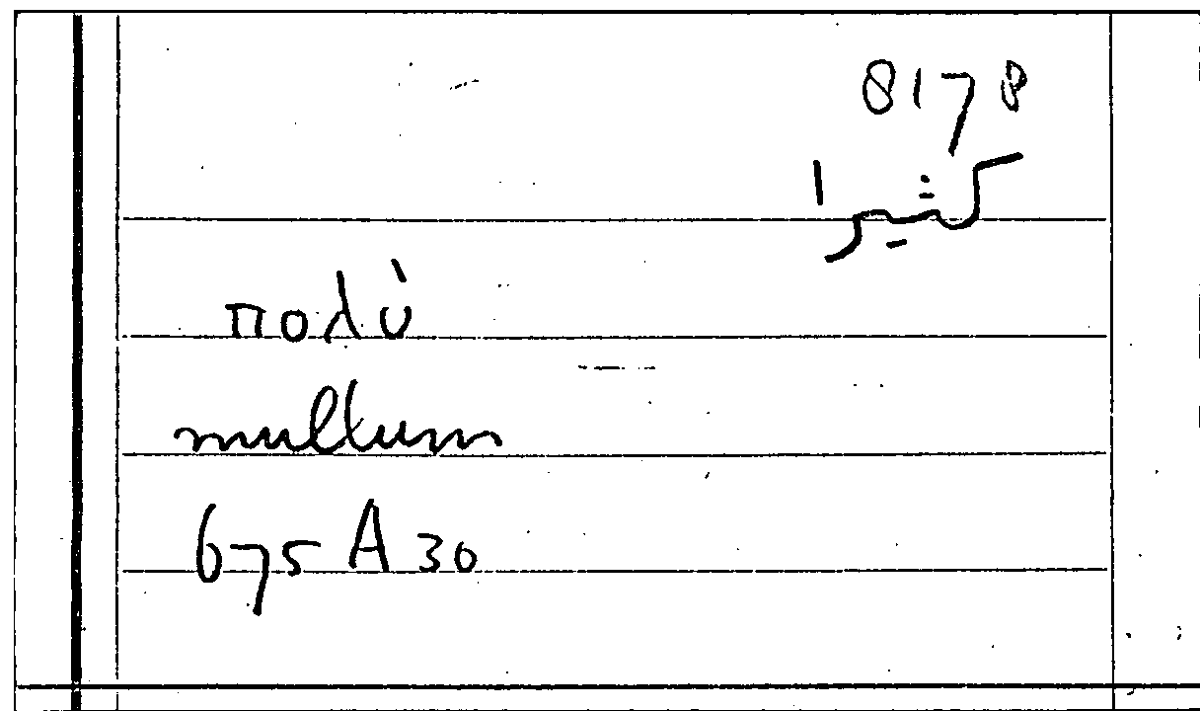 8178
كثيرا
πολὺ
multum
675 A 30